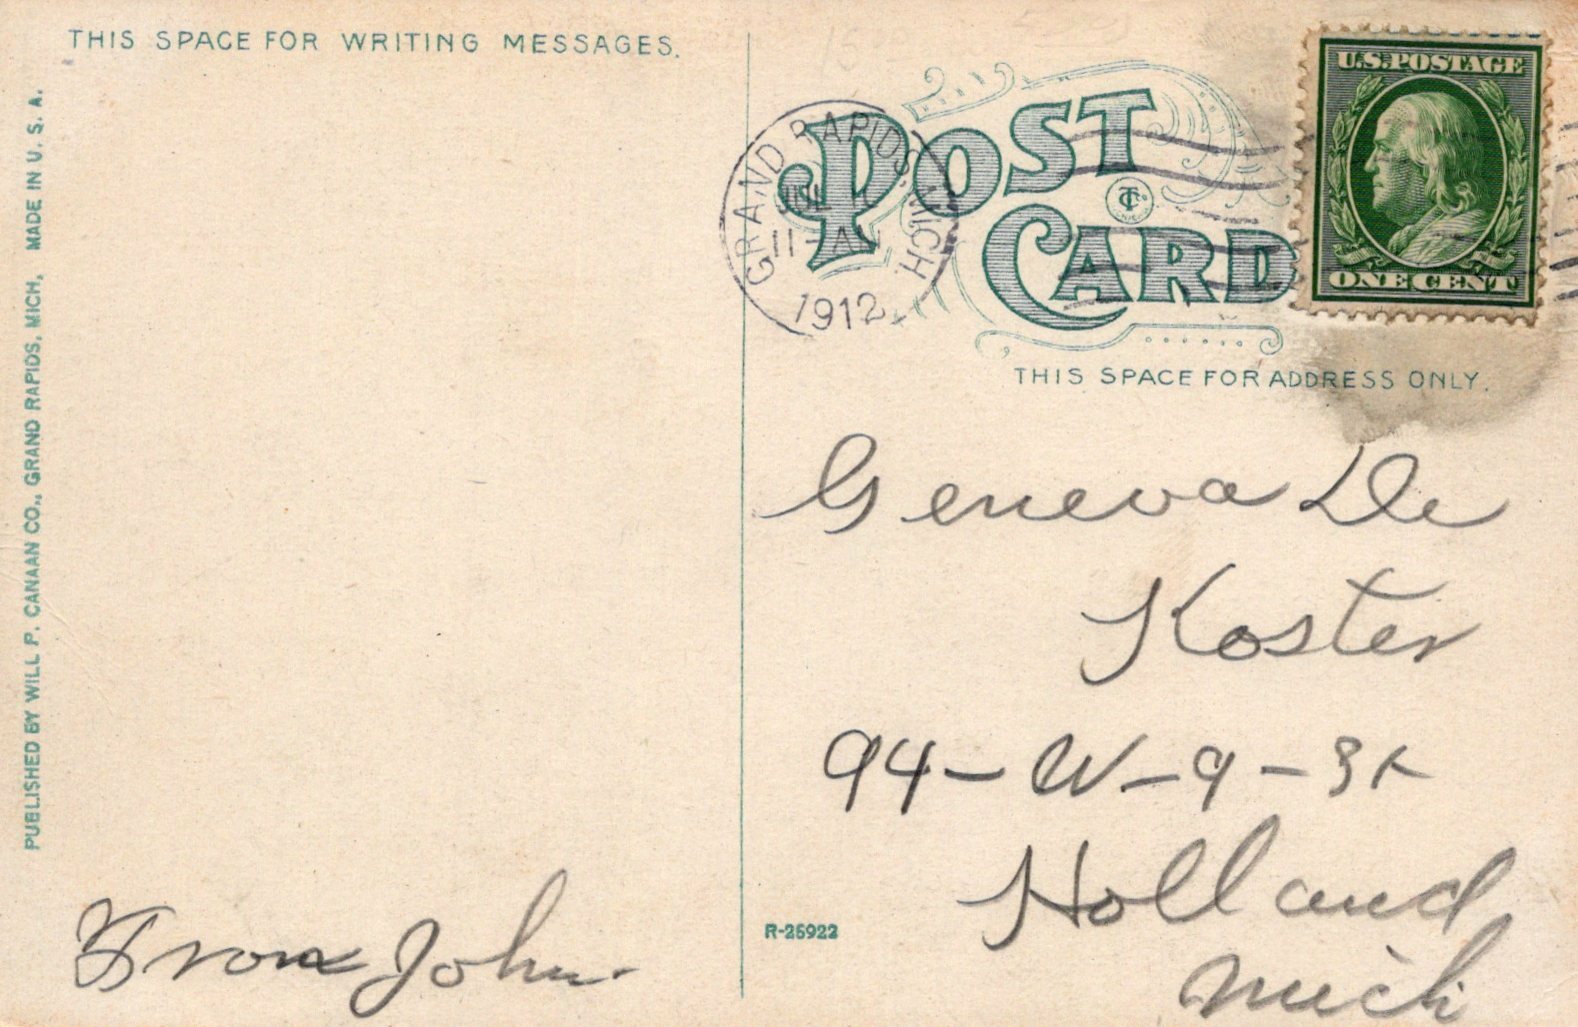 THIS SPACE FOR WRITING MESSAGES.
PUBLISHED BY WILL P. CANAAN CO., GRAND RAPIDS, MICH. MADE IN U. S. A.
From John
POST
CARD
GRAND RAPIDS, MICH.
11-A
1912
U.S. POSTAGE
ONE CENT
THIS SPACE FOR ADDRESS ONLY.
Geneva De
Koster
94-W-9-St
Holland
Mich
R-26922